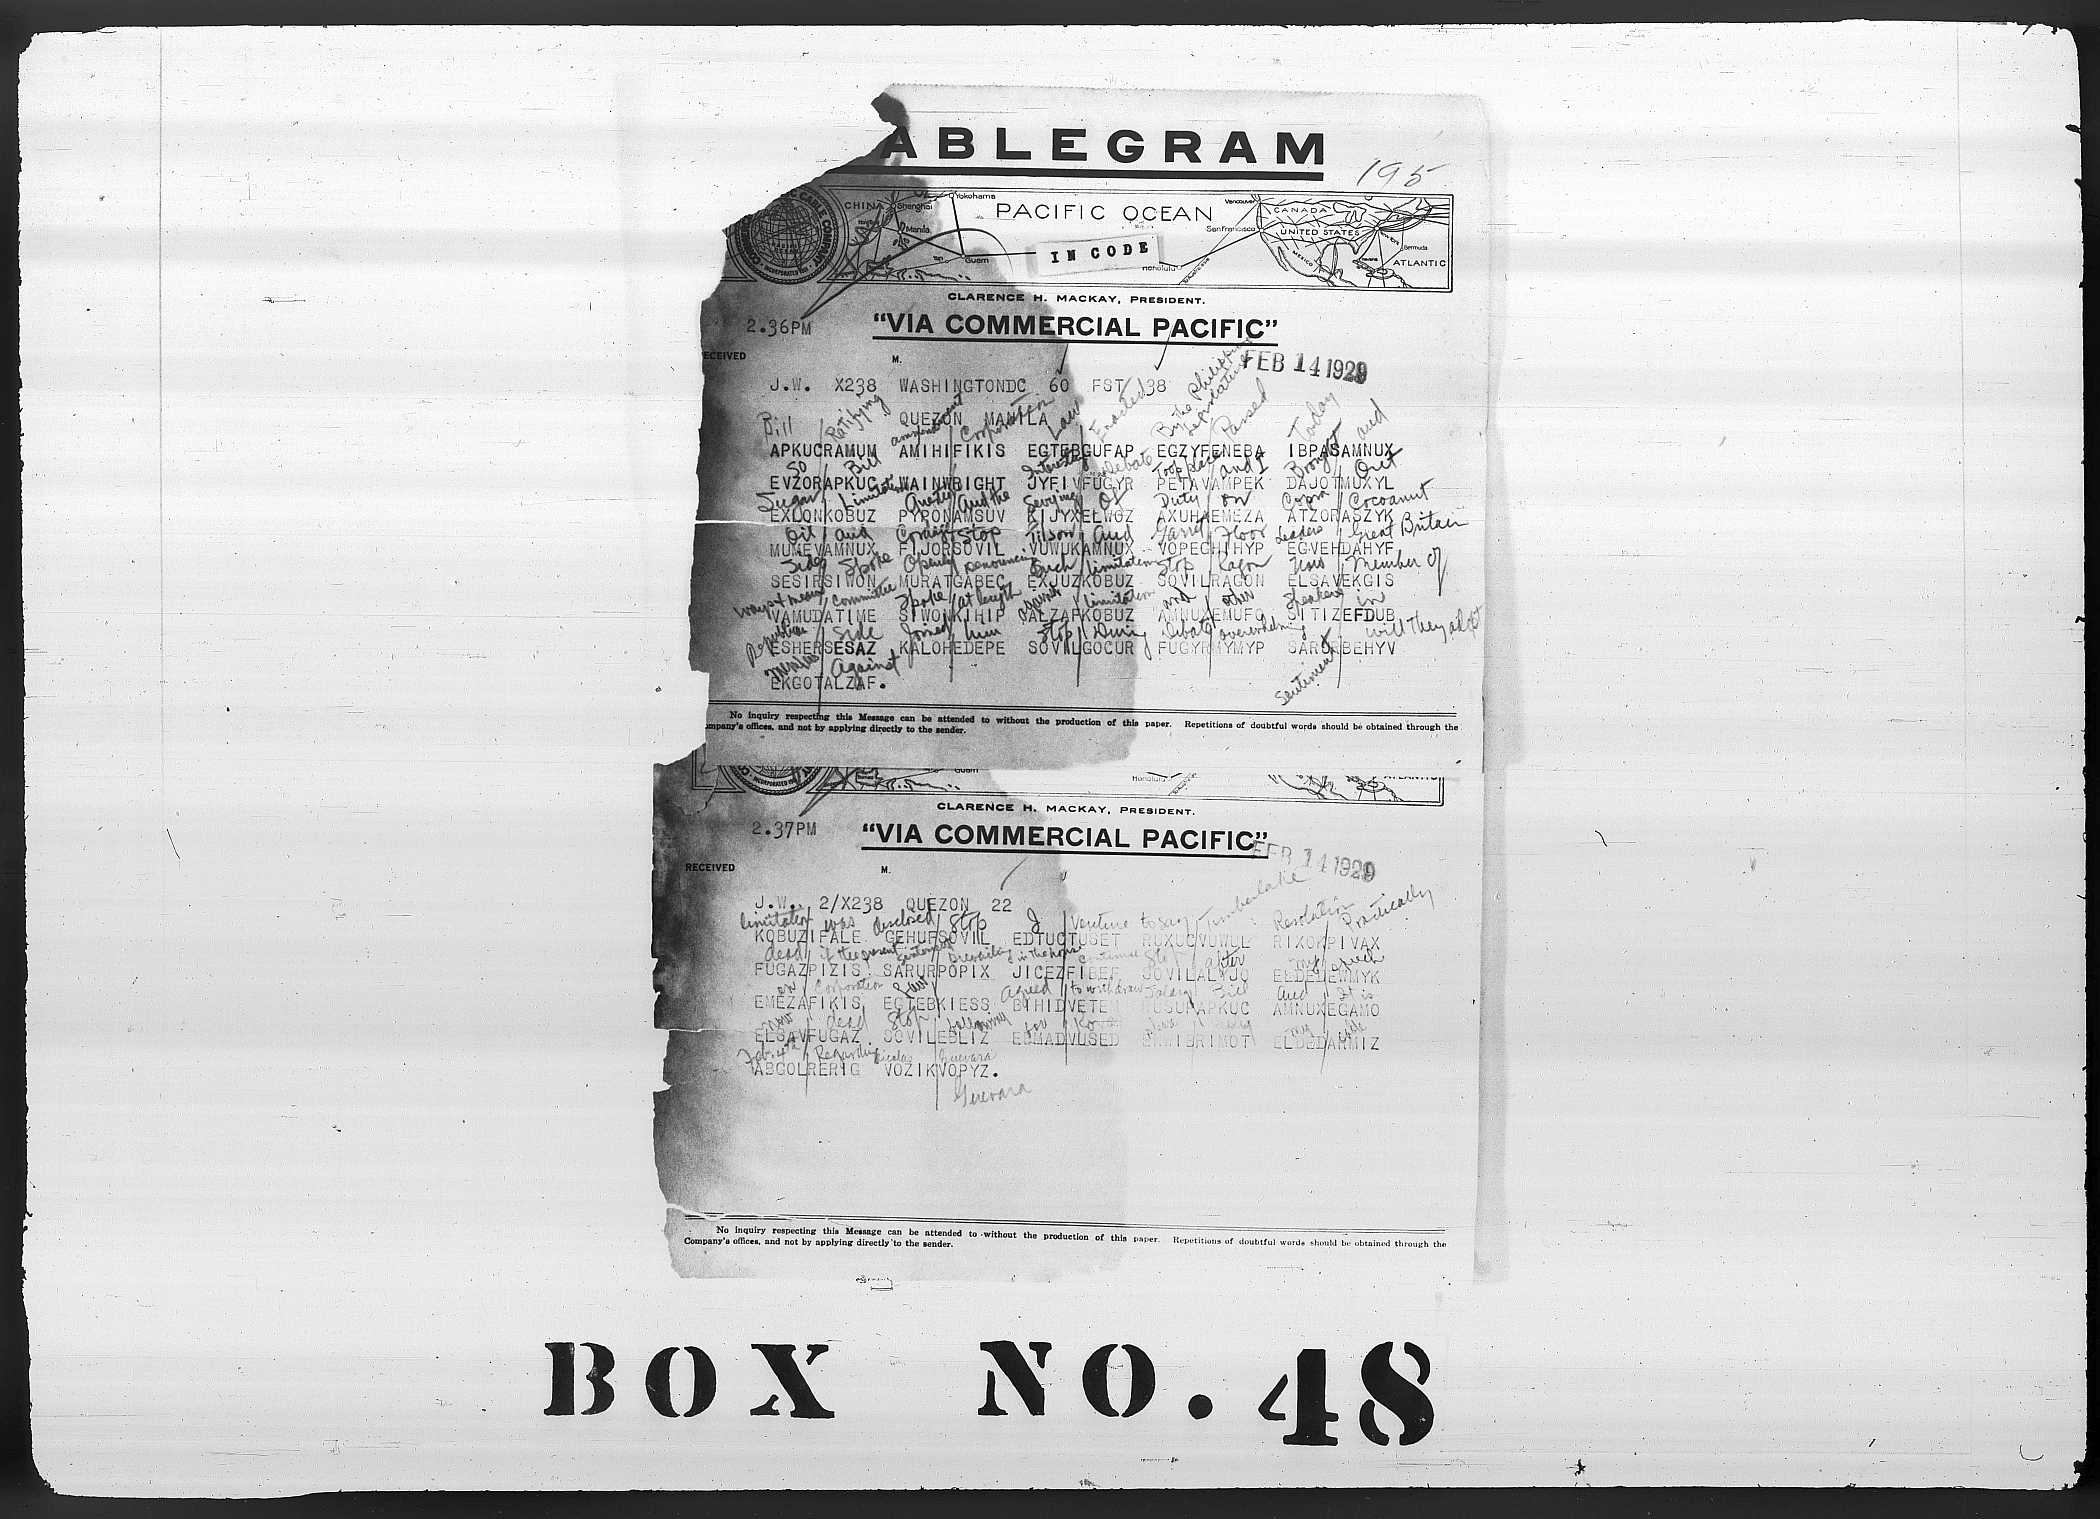 ABLEGRAM
195
CHINA Shanghai Yokohama PACIFIC OCEAN Vancouver CANADA
Manila San Francisco UNITED STATES Bermuda
Guam IN CODE Honolulu MEXICO ATLANTIC
CABLE COMPANY INCORPORATED
CLARENCE H. MACKAY, PRESIDENT.
2.36PM "VIA COMMERCIAL PACIFIC"
ECEIVED M. FEB 14 1929
J.W. X238 WASHINGTONDC 60 FST 38
QUEZON MANILA
Bill Ratifying amendment Corporation Law Enacted By the Philippine Legislature Passed Today and
APKUCRAMUM AMIHIFIKIS EGTEBGUFAP EGZYFENEBA IBPASAMNUX
so Bill Interesting Debate Took place and I Brought Out
EVZORAPKUC WAINWRIGHT JYFIVFUGYR PETAVAMPEK DAJOTMUXYL
Sugar Limitation and the Of Duty on Copra Cocoanut
EXLONKOBUZ PYRONAMSUV KIJYXELWOZ AXUHAEMEZA ATZORASZYK
Oil and Stop Tilson and Garret Floor Leaders Great Britain
MUMEVAMNUX FIJORSOVIL VUWUKAMNUX VOPECHIHYP EGVEHDAHYF
Sides Spoke Openly denouncing Such limitation Stop Ragon Member Of
SESIRSIWON MURATGABEC EXJUZKOBUZ SOVILRAGON ELSAVEKGIS
ways & means Committee Spoke at length against limitation and other Speakers in
VAMUDATIME SIWONKIHIP ALZAFKOBUZ AMNUXEMUFO SITIZEFDUB
Republican Side Joined him Stop During Debate overwhelming Sentiment will They adopt
ESHERSESAZ KALOHEDEPE SOVILGOCUR FUGYRNYMYP SARURBEHYV
measures Against
EKGOTALZAF.
No inquiry respecting this Message can be attended to without the production of this paper. Repetitions of doubtful words should be obtained through the
ompany's offices, and not by applying directly to the sender.
INCORPORATED Guam Honolulu ATLANTIC
CLARENCE H. MACKAY, PRESIDENT.
2.37PM "VIA COMMERCIAL PACIFIC"
RECEIVED M. FEB 14 1929
J.W. 2/X238 QUEZON 22
limitation was disclosed Stop I venture to say Timberlake Resolution Practically
KOBUZIFALE GEHUFSOVIL EDTUCTUSET RUXUCVUWUL RIXOKPIVAX
dead if the present sentiment prevailing in the house continues Stop after my speech
FUGAZPIZIS SARURPOPIX JICEZFIBEF SOVILALYJO ELDELEWMYK
on Corporation Law Agreed to withdraw Salary Bill and It is
EMEZAFIKIS EGTEBKIESS BIHIDVETEM RUSURAPKUC AMNUXEGAMO
now dead Stop following for my
ELSAVFUGAZ SOVILEBLIZ EBMADVUSED ERWIBRIMOT ELDEDARMIZ
Feb. 4th Regarding Nicolas Guevara
ABGOLRERIG VOZIKVOPYZ.
Guevara
No inquiry respecting this Message can be attended to without the production of this paper. Repetitions of doubtful words should be obtained through the
Company's offices, and not by applying directly to the sender.
BOX NO. 48